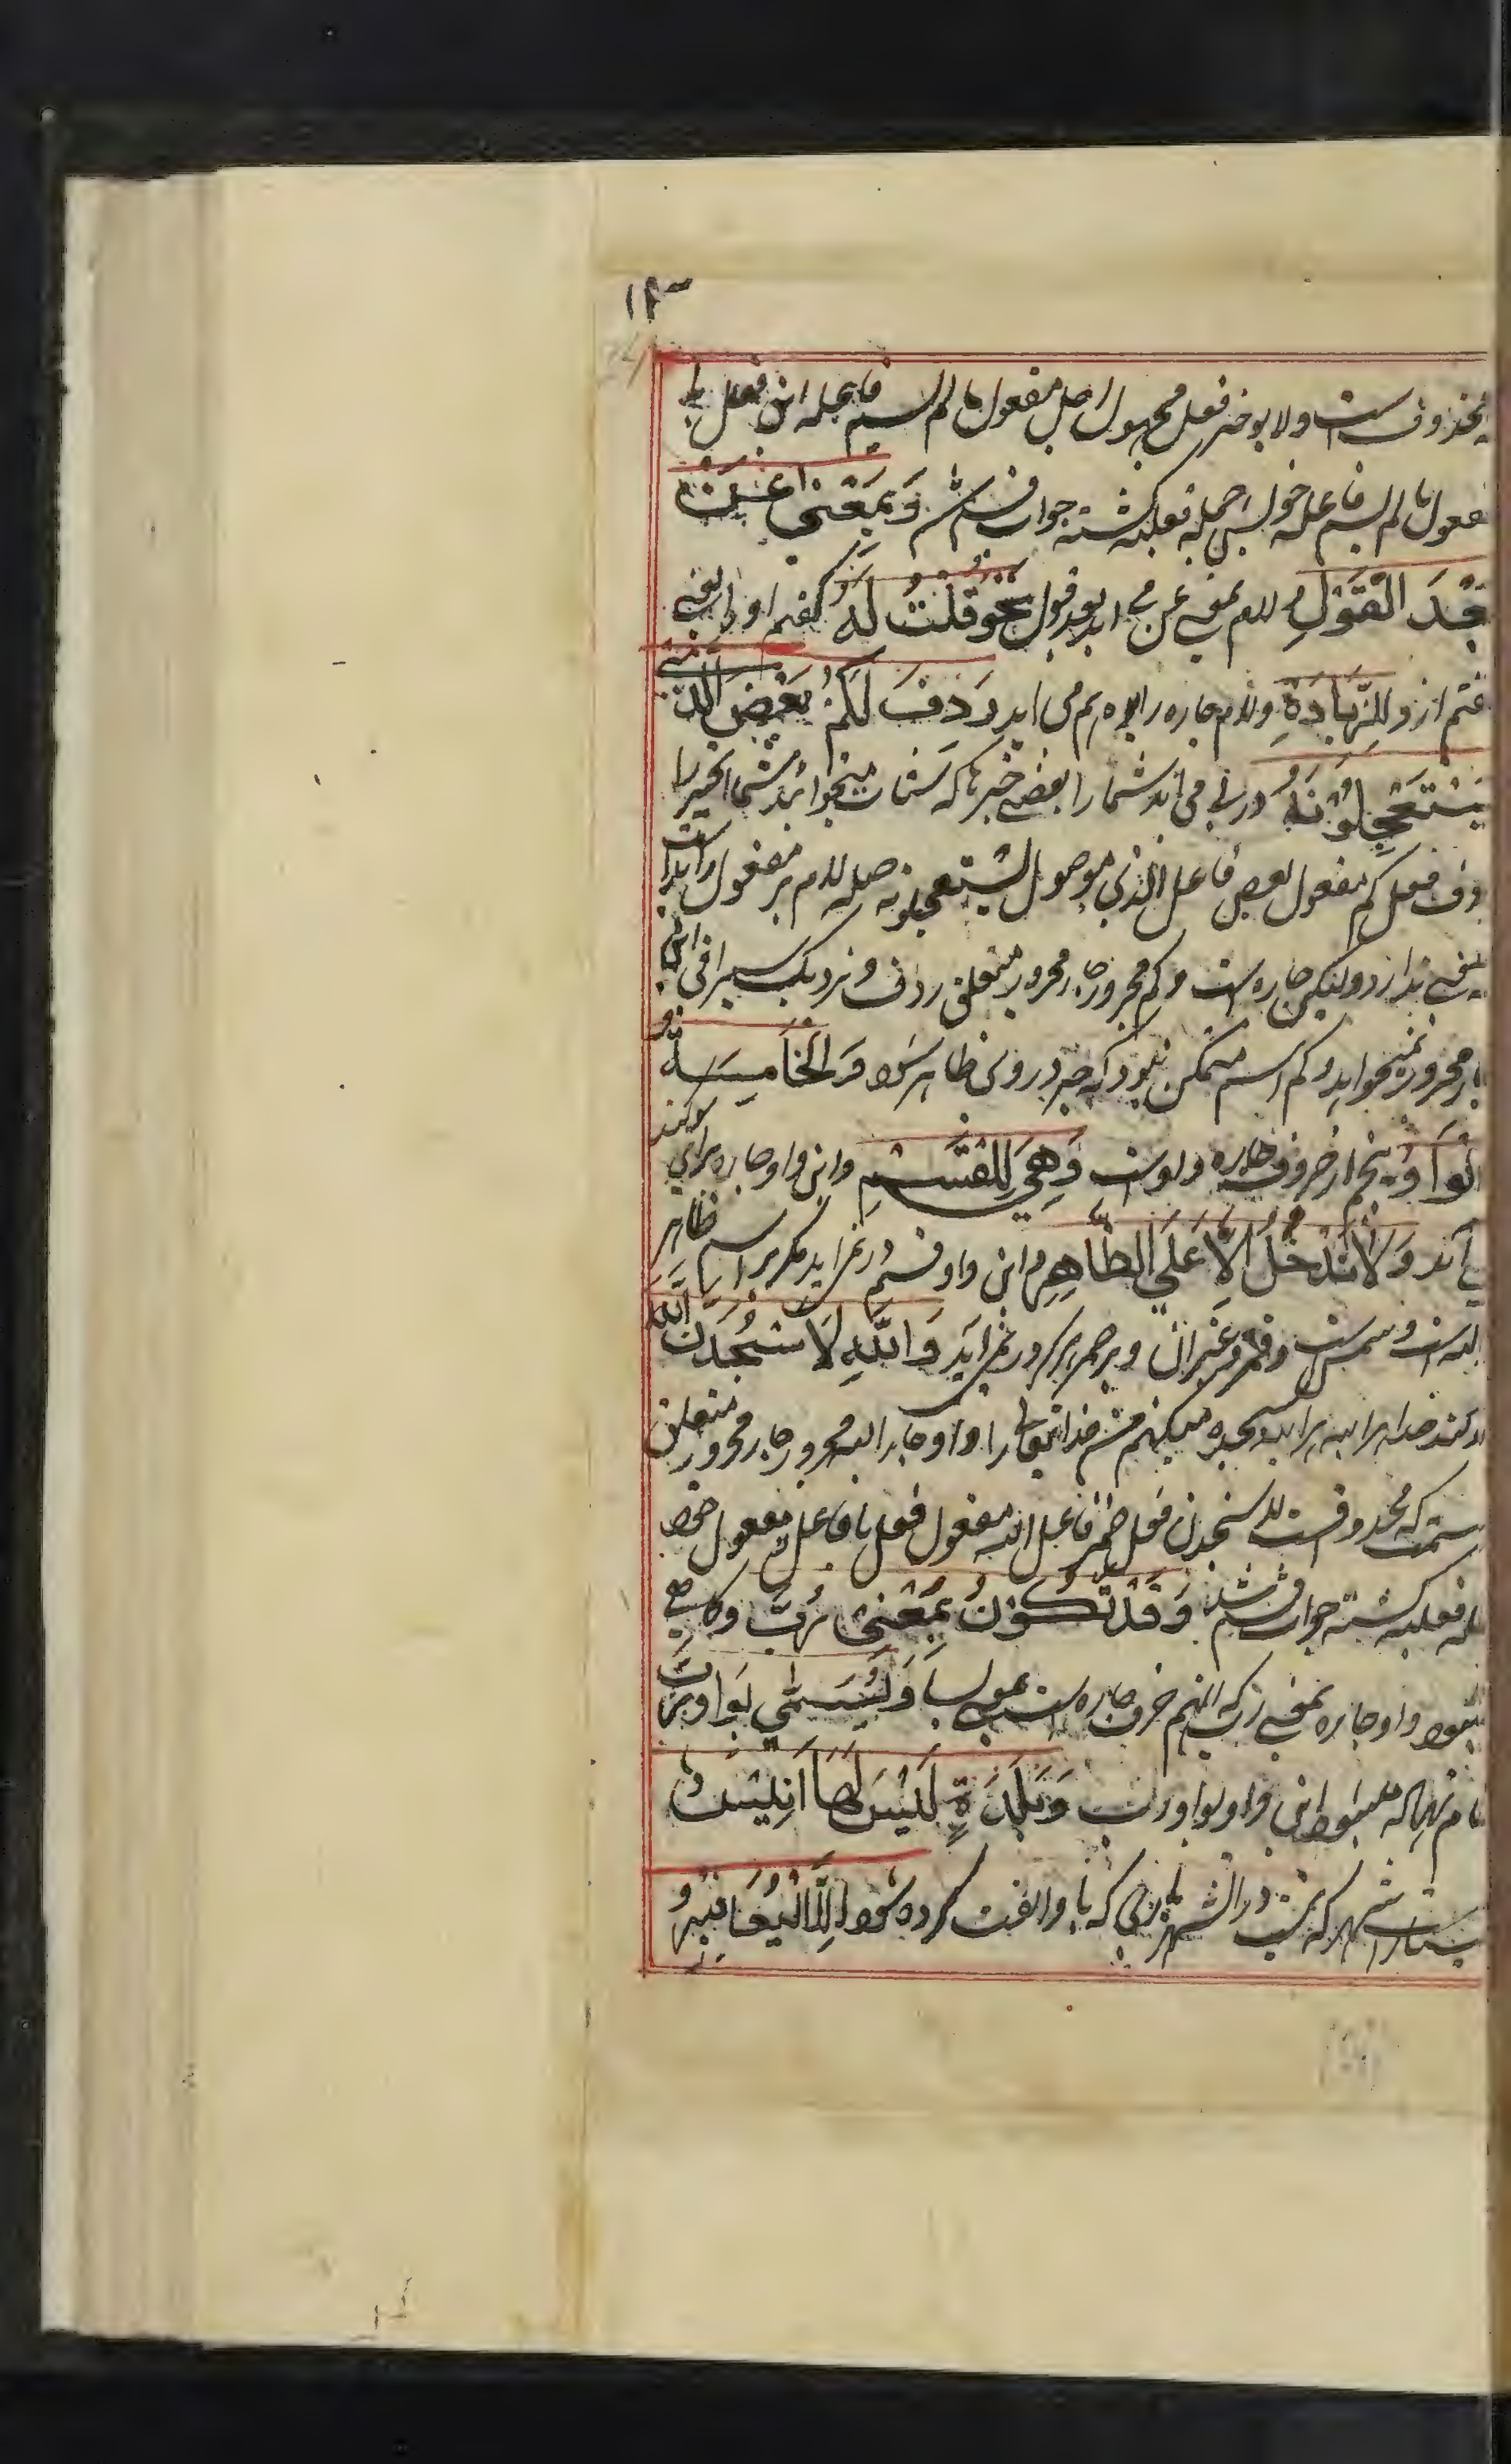 ۱۳
محذوف است ولا یوخر فعل مجهول اجل مفعول ما لم یسم فاعله این فعل با
مفعول ما لم یسم فاعله خول جمله فعلیه گشته جواب قسم شد وَبِمَعْنٰی عَنْ
بَعْدَ الْقَوْلِ و لام بمعنی عن می آید بعد قول نَحْوُ قُلْتُ لَهُ گفتم او را یعنی
گفتم ازو لِلزِّیَادَةِ ولام جاره زایده هم می آید رَدِفَ لَکُمْ بَعْضُ الَّذِیْ
یَسْتَعْجِلُوْنَهُ در پی می آید شما را بعضی خبرها که شتاب میخواهند شما آنخبر را
ردف فعل کم مفعول بعض فاعل الذی موصول یستعجلونه صله لام بر مفعول زاید است
معنی ندارد ولیکن جاره است و کم مجرور جار مجرور متعلق ردف و نزدیک سیرافی این
جار مجرور نمیخواهد و کم اسم متمکن نبود که جر دروی ظاهر شود وَالْخَامِسَةُ
اَلْوَاوُ پنجم از حروف جاره واوست وَهِیَ لِلْقَسَمِ و این واو جاره برای سوکند
می آید وَلَا تَدْخُلُ اِلَّا عَلَی الظَّاهِرِ و این واو قسم در نمی آید مگر بر اسم ظاهر
الله است و شمس است و قمر و غیر آن و بر ضمیر در نمی آید وَاللهِ لَاَسْجُدَنَّ اللهَ
سوکند خدا را البته البته سجده میکنم من خدایتعالی را واو جار الله مجرور جار مجرور متعلق
قسمت که محذوفست لاسجدن فعل ضمیر فاعل الله مفعول فعل با فاعل و مفعول خود
جمله فعلیه گشته جواب قسم شد وَقَدْ تَکُوْنُ بِمَعْنٰی رُبَّ و گاهی
میشود واو جاره بمعنی رب که انهم حرف جاره است وَیُسَمّٰی بِوَاوِ رُبَّ
نام نهاده میشود این واو بواو رب وَبَلْدَةٍ لَیْسَ لَهَا اَنِیْسُ
بسیار شهر که نیست در آن شهر یاری که با او الفت کرده شود اِلَّا الْیَعَافِیْرُ وَ